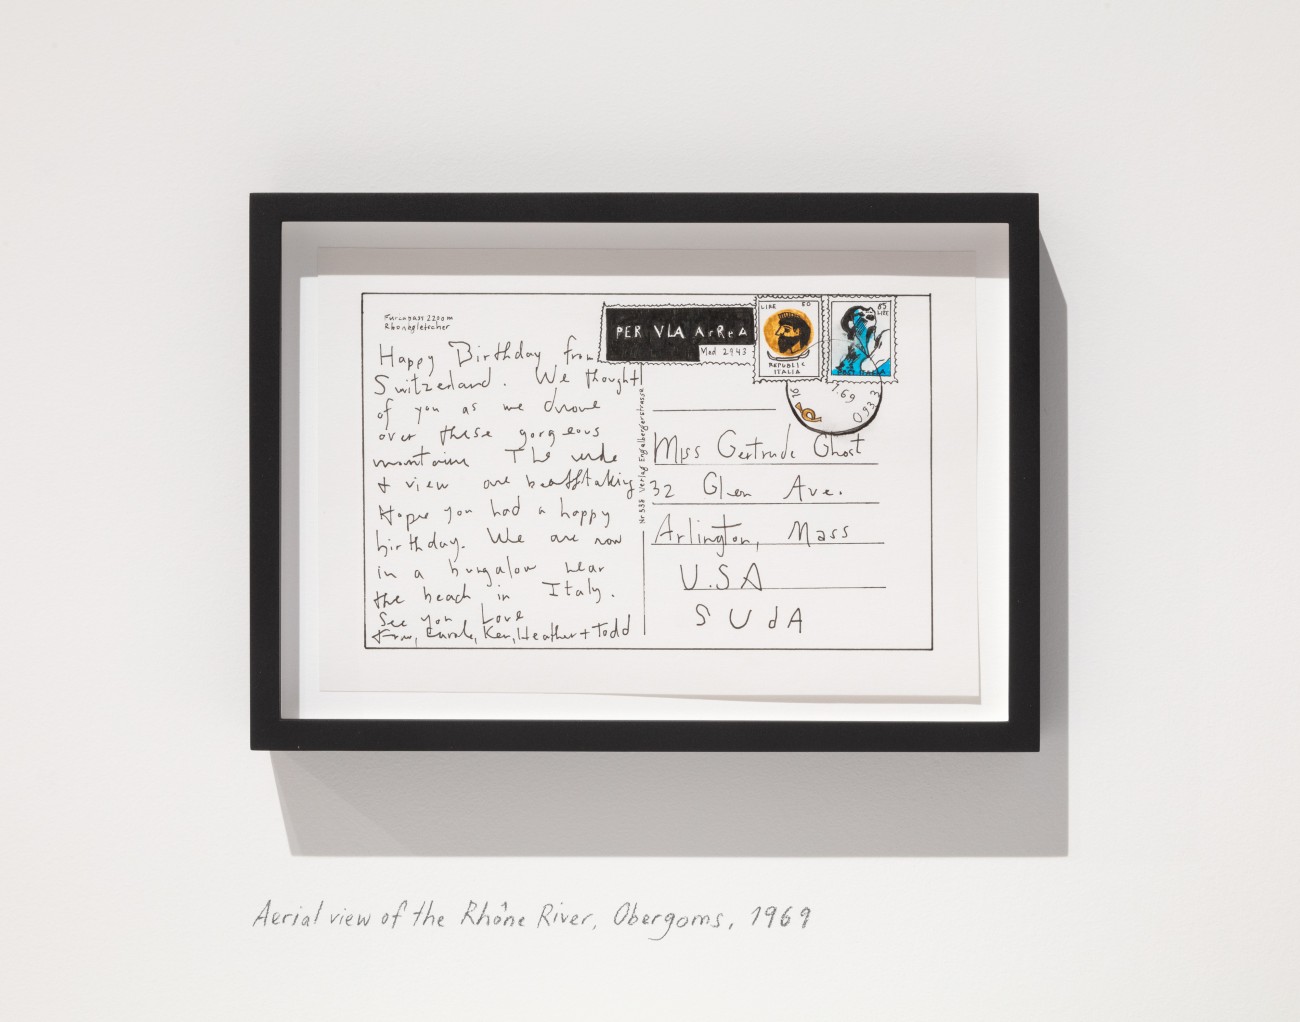 Furcapass 2200m
Rhonegletscher
Happy Birthday from
Switzerland. We thought
of you as we drove
over these gorgeous
mountains The
& view are
Hope you had a happy
birthday. We are now
in a bungalow near
the beach in Italy.
See you Love
Carole, Ken, Heather + Todd
Nr 538 Verlag Engelbergerstrasse
PER VIA AeReA
Mod 2943
LIRE 50
REPUBLIC
ITALIA
85
LIRE
16
1.69
0933
Miss Gertrude Ghost
32 Glen Ave.
Arlington, Mass
U.SA
S U d A
Aerial view of the Rhône River, Obergoms, 1969